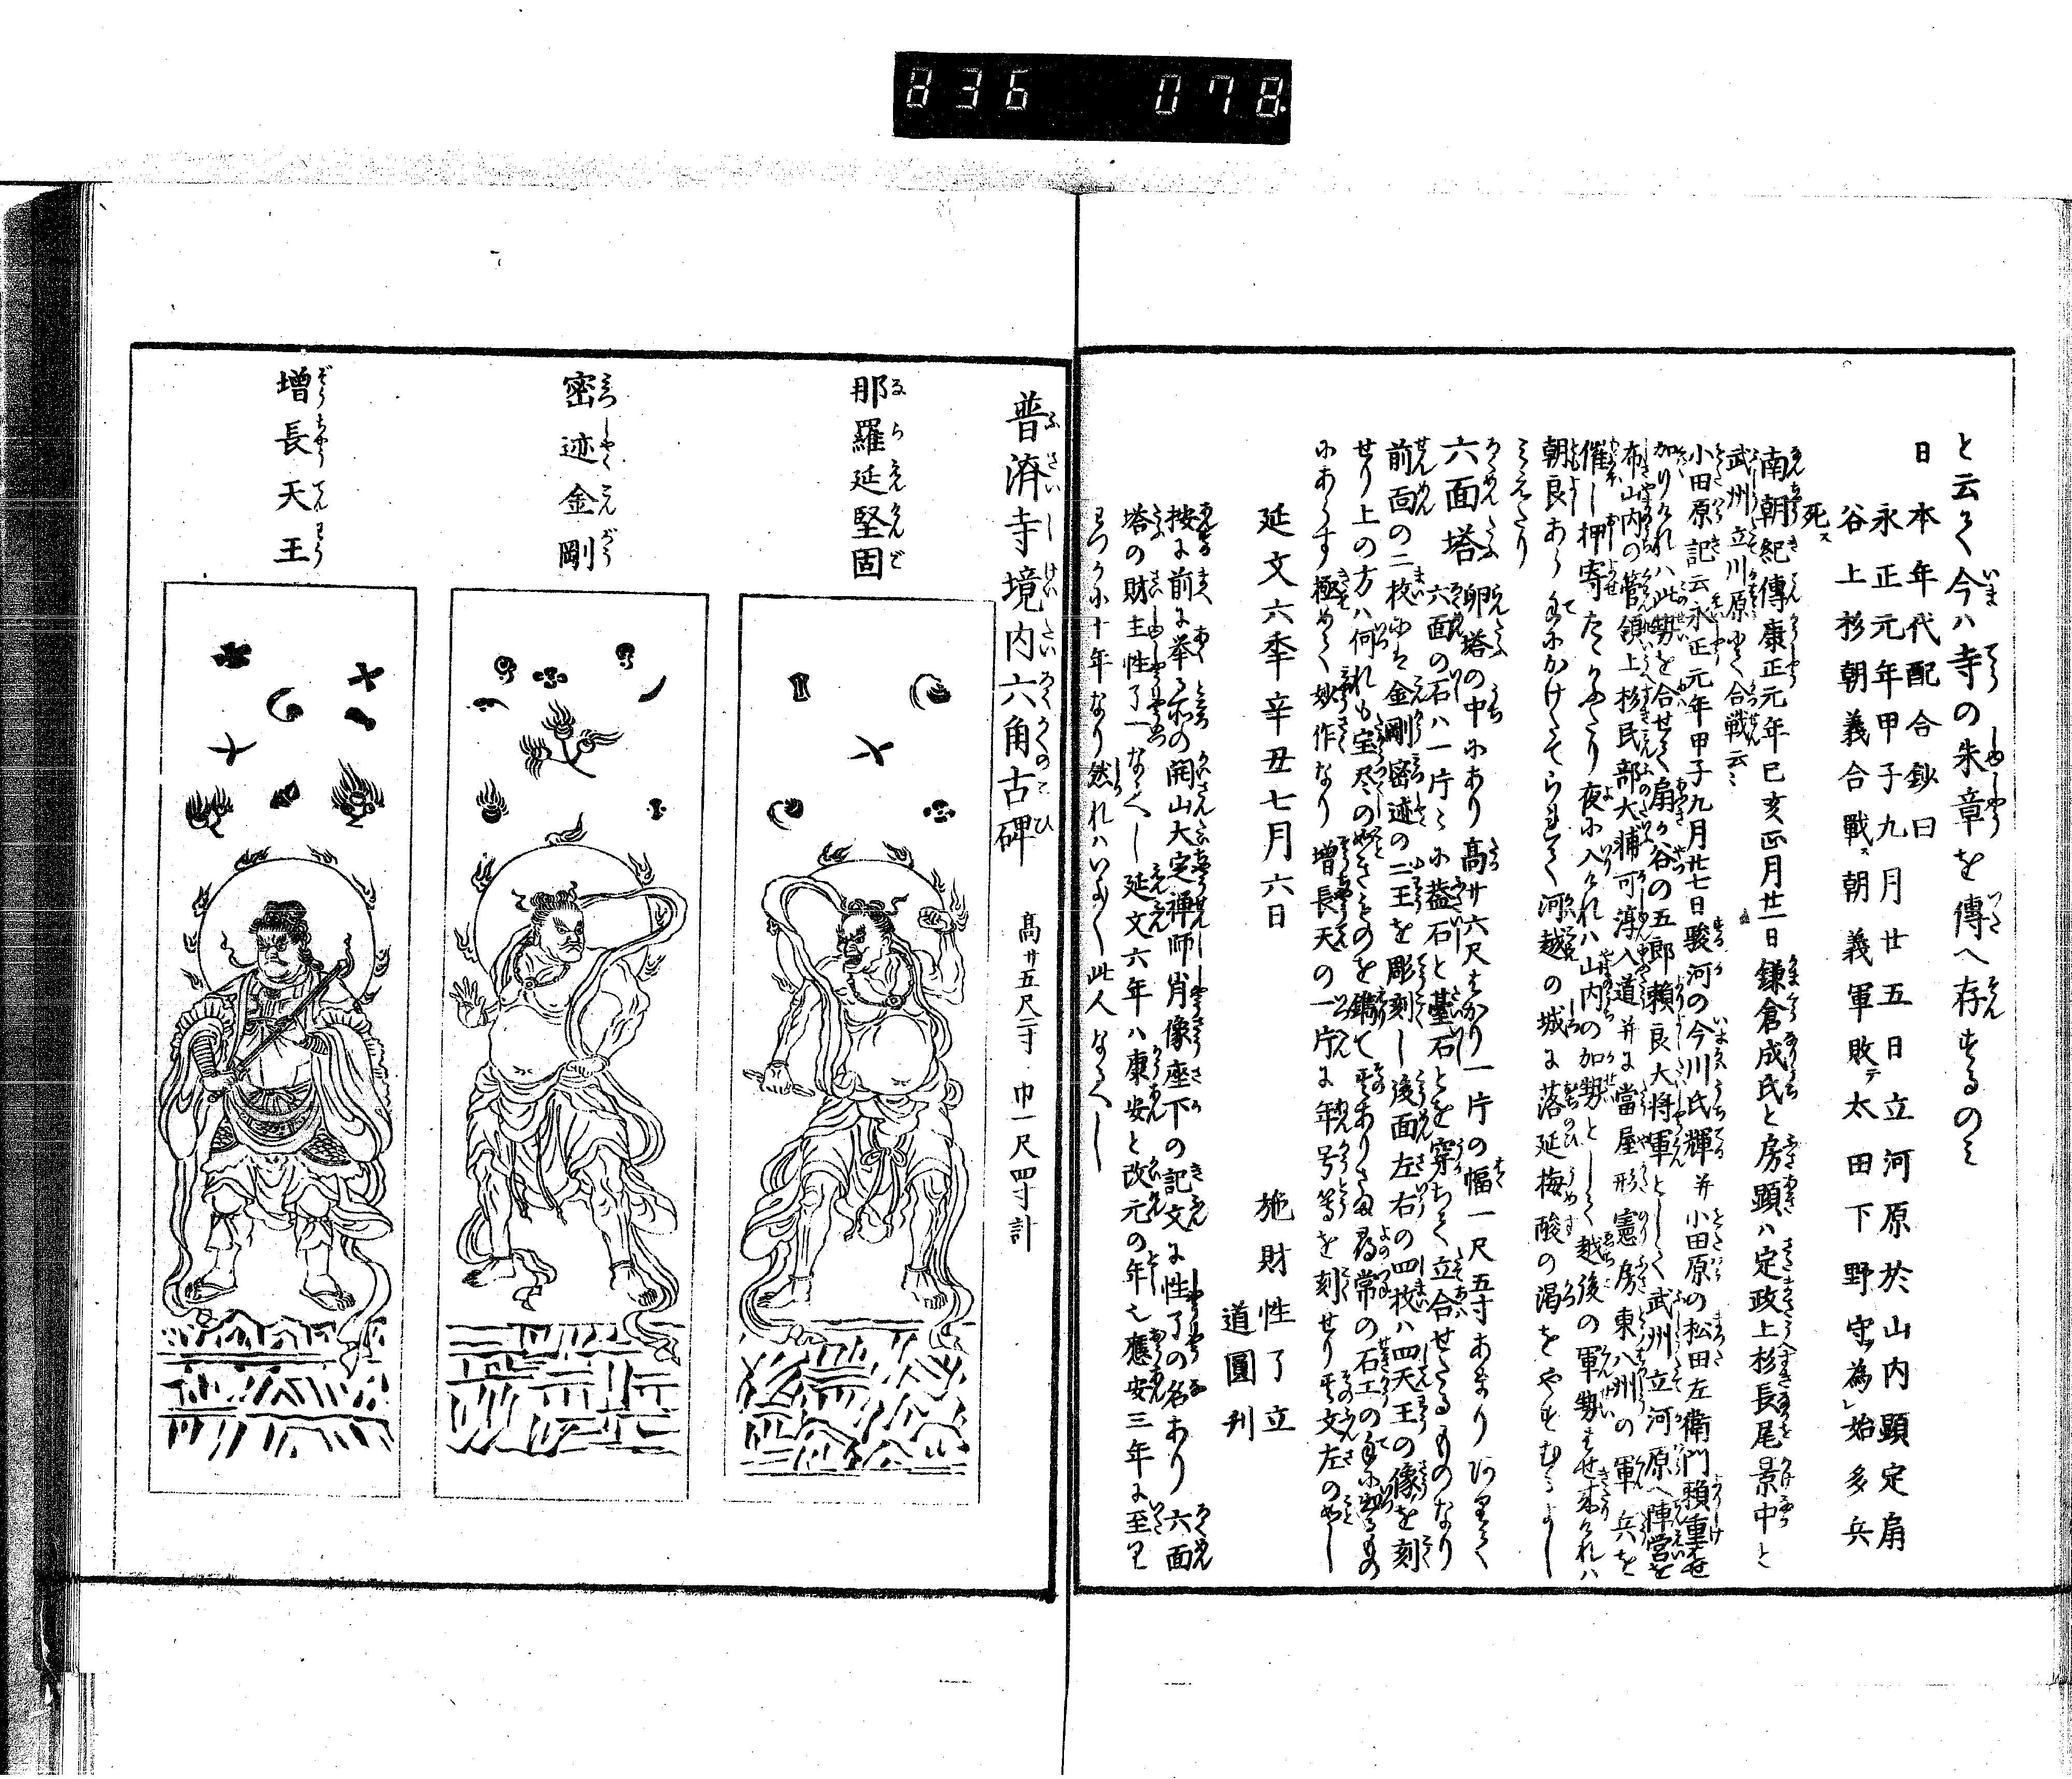 836 078
と云く今ハ寺の朱章を傳へ存するのミ
日本年代配合鈔曰
永正元年甲子九月廿五日立河原於山内顕定扇
谷上杉朝義合戰ス朝義軍敗テ太田下野守為始多兵
死ス
南朝紀傳康正元年巳亥正月廿一日鎌倉成氏と房顕ハ定政上杉長尾景中と
武州立川原にて合戰云〻
小田原記云永正元年甲子九月廿七日駿河の今川氏輝并小田原の松田左衛門頼重
加りけれハ此勢を合せて扇ヶ谷の五郎頼良大将軍として武州立河原へ陣営を
布山内の管領上杉民部大浦可淳入道并に當屋形憲房東八州の軍兵を
催し押寄たゝかふたり夜に入けれハ山内の加勢として越後の軍勢はせ来けれハ
朝良あら手にかけたてられて河越の城に落延梅酸の渇をやすむるよし
ミえたり
六面塔 卵塔の中にあり高サ六尺はかり一片の幅一尺五寸あまりありて
六面の石ハ一片〻に蓋石と臺石とを穿ちて立合せたるものなり
前面の二枚にハ金剛密迹の二王を彫刻し後面左右の四枚ハ四天王の像を刻
せり上の方ハ何れも宝尽の如きものを鐫て其ありさま尋常の石工の手に出るもの
にあらす極めて妙作なり増長天の一片に年号等を刻せり其文左の如し
延文六季辛丑七月六日 施財性了立
道圓刊
按に前に挙る所の開山大定禅師肖像座下の記文に性了の名あり六面
塔の財主性了一なるへし延文六年ハ康安と改元の年也應安三年に至り
わつかに十年なり然れハいよ〱此人なるへし
普済寺境内六角古碑 高サ五尺二寸 巾一尺四寸計
那羅延堅固
密迹金剛
増長天王